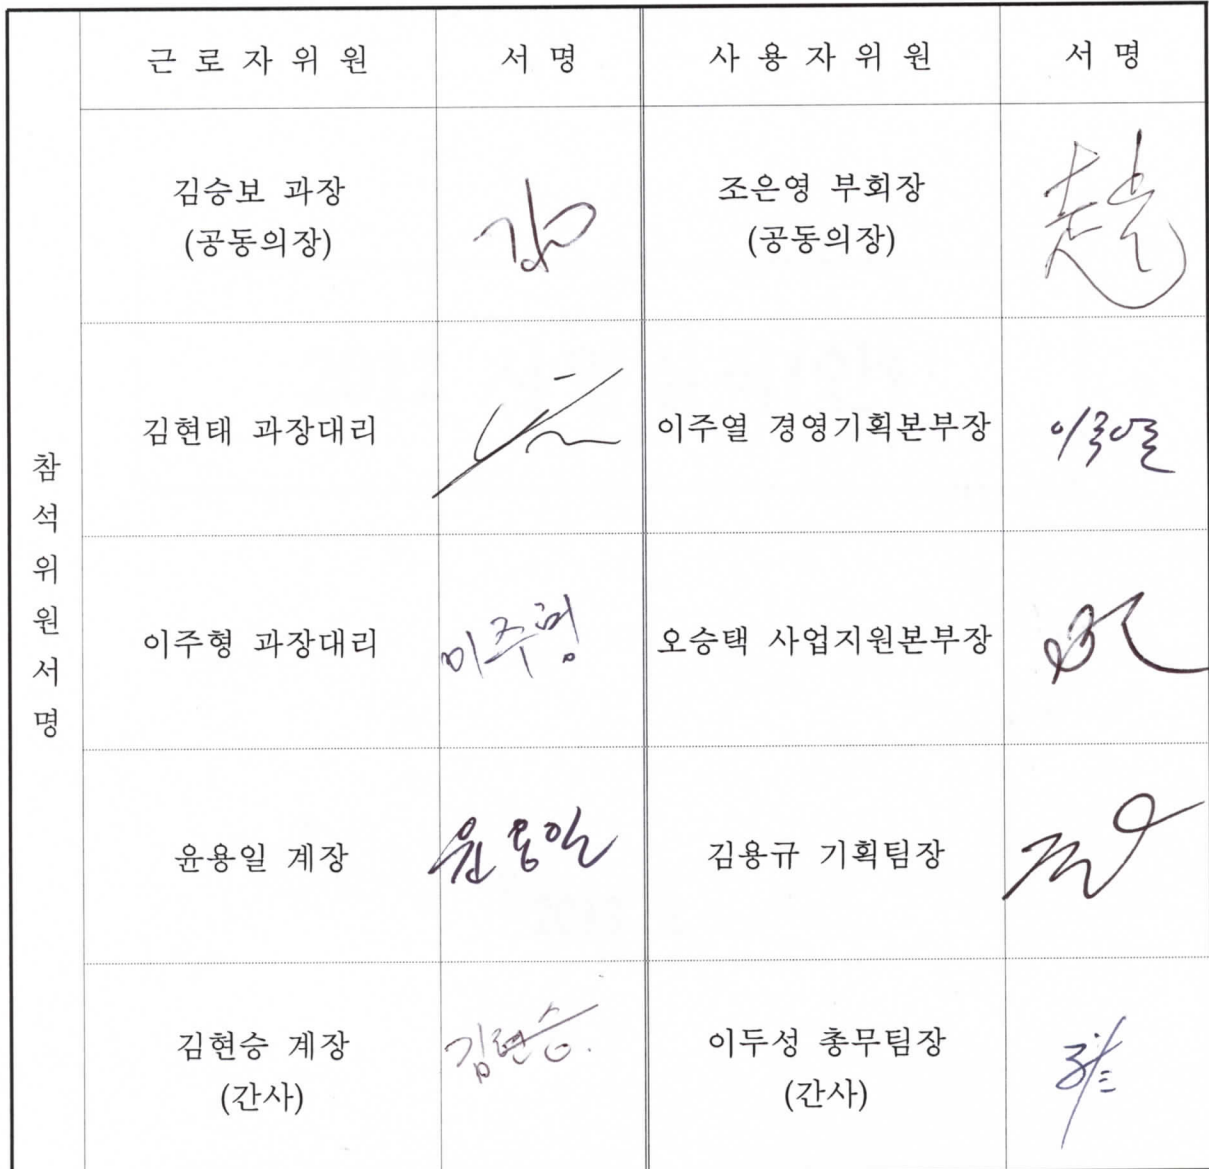 근 로 자 위 원 서 명 사 용 자 위 원 서 명
참석위원서명
김승보 과장 조은영 부회장
(공동의장) (공동의장)
김현태 과장대리 이주열 경영기획본부장 이주열
이주형 과장대리 이주형 오승택 사업지원본부장
윤용일 계장 윤용일 김용규 기획팀장
김현승 계장 김현승 이두성 총무팀장
(간사) (간사)